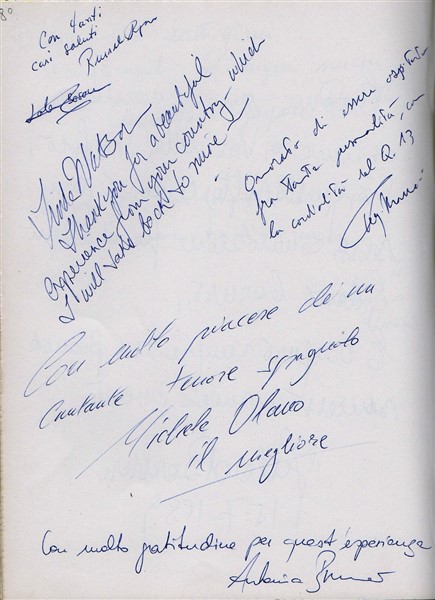 80
Con tanti
cari saluti
Russel Ryan
Linda Watson
Thank you for a beautiful
experience from your country which
I will take back to mine
Onorato di essere ospitato
fra tanta personalità, con
la cordialità del Q. 13
Con molto piacere di un
cantante tenore spagnolo
Michele Olano
il migliore
Con molto gratitudine per quest'esperienza
Antonia